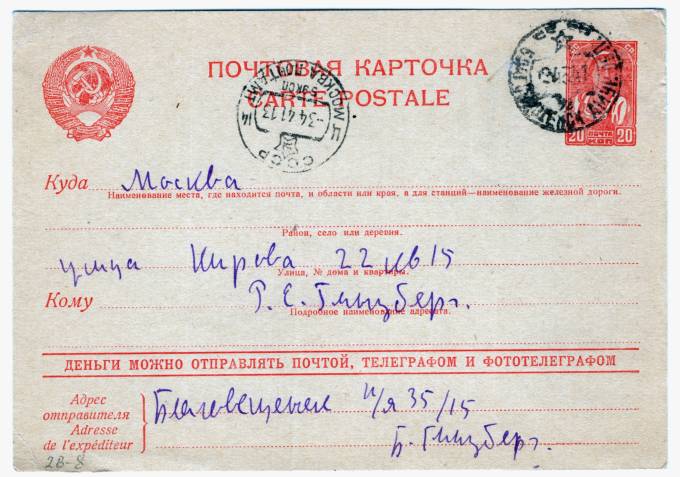 ПОЧТОВАЯ КАРТОЧКА
CARTE POSTALE
МОСКВА
-3 4 41 13
СССР
20 ПОЧТА 20
КОП
Куда Москва
Наименование места, где находится почта, и области или края, а для станций—наименование железной дороги.
Район, село или деревня.
улица Кирова 22 кв 15
Улица, № дома и квартиры.
Кому Г. Е. Гинзберг.
Подробное наименование адресата.
ДЕНЬГИ МОЖНО ОТПРАВЛЯТЬ ПОЧТОЙ, ТЕЛЕГРАФОМ И ФОТОТЕЛЕГРАФОМ
Адрес отправителя
Adresse de l'expéditeur
Благовещенск п/я 35/15
Б. Гинзберг.
2В-8